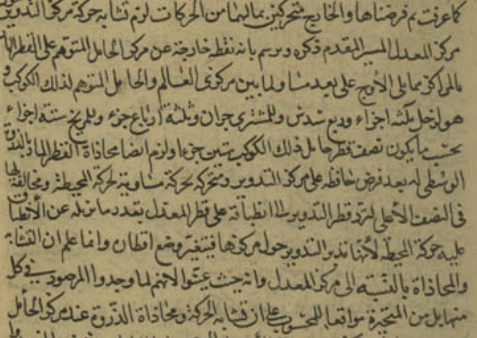 كما عرفت ثم فرضناها والخارج متحركين بمالهما من الحركات لزم تشابه حركة مركز التدوير
مركز المعدل المسير المقدم ذكره ويرسم بانه نقطة خارجة عن مركز الحامل المتوهم على القطر المار
بالمراكز مما يلى الاوج على بعد مساو لما بين مركزى العالم والحامل المتوهم لذلك الكوكب و
هو لزحل ثلثة اجزاء وربع سدس وللمشترى جزان وثلثة ارباع جزء وللمريخ ستة اجزاء
بحسب ما يكون نصف قطر حامل ذلك الكوكب ستين جزءا ولزم ايضا محاذاة القطر المار بالذروة
الوسطى له بعد فرض حافظة على مركز التدوير ومتحركة بحركة مساوية لحركة المحيطة ومخالفة لها
فى النصف الاعلى لترد قطر التدوير الى انطباقه على قطر المعدل بقدر ما تزيله عن الانطباق
عليه حركة المحيطة لانها تدير التدوير حول مركزها فيتغير وضع اقطاره وانما علم ان التشابه
والمحاذاة بالنسبة الى مركز المعدل وانه حيث عينوا لانهم لما وجدوا المرصود فى كل
منهما بل من المتحيرة موافقا للمحسوب على ان تشابه الحركة ومحاذاة الذروة عند مركز الحامل